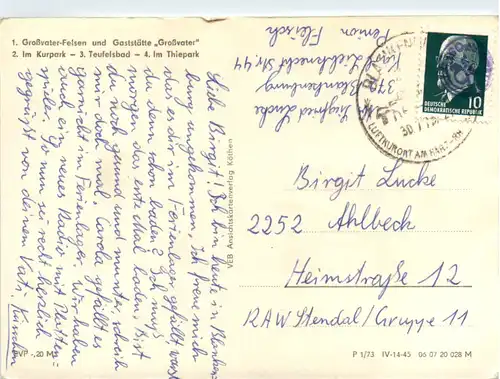 1. Großvater-Felsen und Gaststätte „Großvater"
2. Im Kurpark – 3. Teufelsbad – 4. Im Thiepark
Liebe Birgit! Ich bin heute in Blanken
burg angekommen. Ich freue mich
daß es dir im Ferienlager gefällt warst
du denn schon baden? Ich muß
morgen das erste mal baden. Bist
du noch gesund und munter, schreib
mir doch mal. Carola gefällt es
garnicht im Ferienlager. Wir haben
auch ein neues Radio mit
spieler. So nun sei recht herzlich
gegrüßt von deinem Vati
VEB Ansichtskartenverlag Köthen
BVP -,20 M
Siegfried Lucke
372 Blankenburg
Karl Liebknecht Str. 44
Pension Fleisch
10
DEUTSCHE
DEMOKRATISCHE REPUBLIK
LUFTKURORT AM HARZ
Birgit Lucke
2252 Ahlbeck
Heimstraße 12
RAW Stendal/Gruppe 11
P 1/73 IV-14-45 06 07 20 028 M